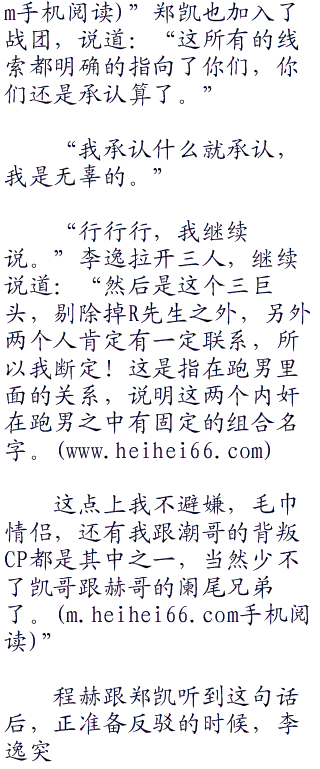 m手机阅读)”郑凯也加入了
战团，说道：“这所有的线
索都明确的指向了你们，你
们还是承认算了。”
“我承认什么就承认，
我是无辜的。”
“行行行，我继续
说。”李逸拉开三人，继续
说道：“然后是这个三巨
头，剔除掉R先生之外，另外
两个人肯定有一定联系，所
以我断定！这是指在跑男里
面的关系，说明这两个内奸
在跑男之中有固定的组合名
字。(www.heihei66.com)
这点上我不避嫌，毛巾
情侣，还有我跟潮哥的背叛
CP都是其中之一，当然少不
了凯哥跟赫哥的阑尾兄弟
了。(m.heihei66.com手机阅
读)”
程赫跟郑凯听到这句话
后，正准备反驳的时候，李
逸突